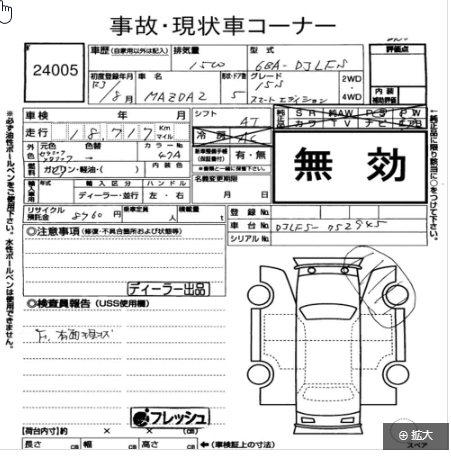 事故・現状車コーナー
24005
車歴(自家用以外は記入) 排気量 型式
1500 6BA-DJLFS
評価点
初度登録年月 車名 形状・ドア数 グレード 2WD
R1 /8月 MAZDA2 5 15S スマートエディション 4WD
内装補助評価
車検 年 月
シフト AT
SR 純AW PS PW
カワ TV ナビ
走行 18717 Km マイル
冷房 AC
無効
外色 元色 色替 カラーNo. 47A
燃料 ガソリン・軽油・( ) 内装色
新車整備手帳(保証書付) 有・無
輸入車用 年式 輸入区分 ハンドル
ディーラー・並行 左・右
名義変更期限
月 日
リサイクル預託金 8760 円 乗車定員 人 積載量 t
登録No.
車台No. DJLFS-052945
シリアルNo.
◎注意事項(修復・不具合箇所および状態等)
ディーラー出品
◎検査員報告(USS使用欄)
F、右面現状
フレッシュ
【荷台内寸】約 × × (cm)
長さ cm 幅 cm 高さ cm ←(車検証上の寸法)
スペア
拡大
※必ず油性ボールペンをご使用下さい。水性ボールペンは使用できません。